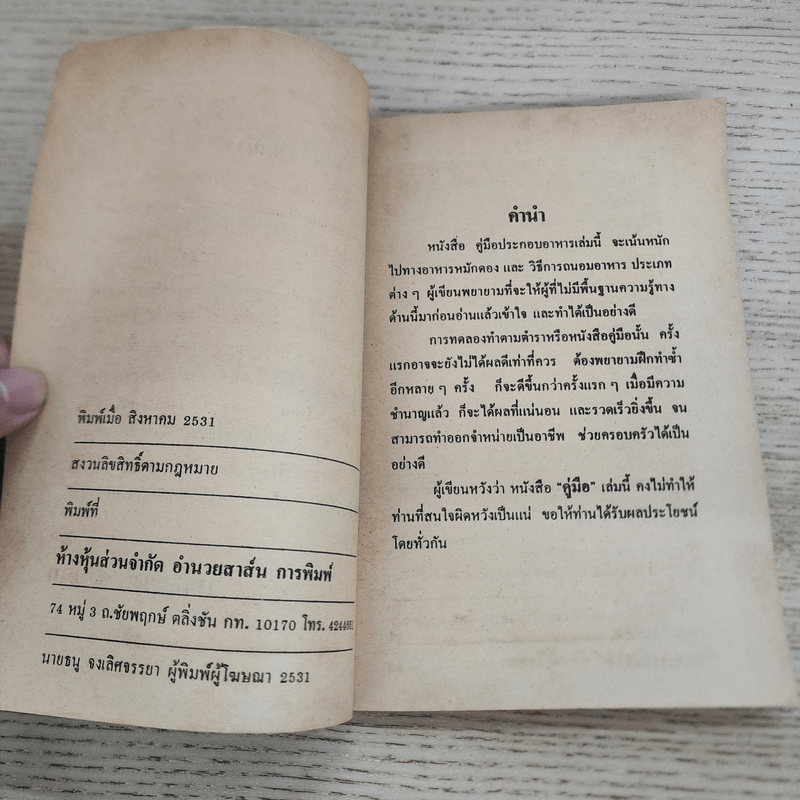 พิมพ์เมื่อ สิงหาคม 2531
สงวนลิขสิทธิ์ตามกฎหมาย
พิมพ์ที่
ห้างหุ้นส่วนจำกัด อำนวยสาส์น การพิมพ์
74 หมู่ 3 ถ.ชัยพฤกษ์ ตลิ่งชัน กท. 10170 โทร.
นายธนู จงเลิศจรรยา ผู้พิมพ์ผู้โฆษณา 2531
คำนำ
หนังสือ คู่มือประกอบอาหารเล่มนี้ จะเน้นหนัก
ไปทางอาหารหมักดอง และ วิธีการถนอมอาหาร ประเภท
ต่าง ๆ ผู้เขียนพยายามที่จะให้ผู้ที่ไม่มีพื้นฐานความรู้ทาง
ด้านนี้มาก่อนอ่านแล้วเข้าใจ และทำได้เป็นอย่างดี
การทดลองทำตามตำราหรือหนังสือคู่มือนั้น ครั้ง
แรกอาจจะยังไม่ได้ผลดีเท่าที่ควร ต้องพยายามฝึกทำซ้ำ
อีกหลาย ๆ ครั้ง ก็จะดีขึ้นกว่าครั้งแรก ๆ เมื่อมีความ
ชำนาญแล้ว ก็จะได้ผลที่แน่นอน และรวดเร็วยิ่งขึ้น จน
สามารถทำออกจำหน่ายเป็นอาชีพ ช่วยครอบครัวได้เป็น
อย่างดี
ผู้เขียนหวังว่า หนังสือ “คู่มือ” เล่มนี้ คงไม่ทำให้
ท่านที่สนใจผิดหวังเป็นแน่ ขอให้ท่านได้รับผลประโยชน์
โดยทั่วกัน